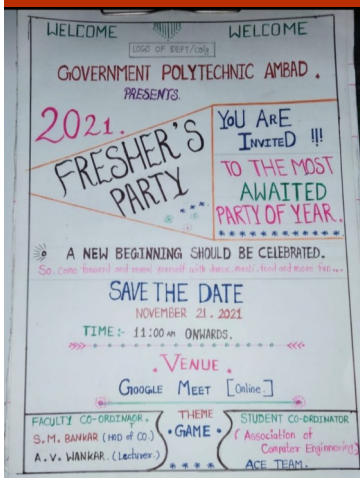 WELCOME WELCOME
LOGO OF DEPT/Colg
GOVERNMENT POLYTECHNIC AMBAD.
PRESENTS.
2021.
FRESHER'S
PARTY
YOU ARE
INVITED !!!
TO THE MOST
AWAITED
PARTY OF YEAR.
A NEW BEGINNING SHOULD BE CELEBRATED.
So. Come forward and reveal yourself with dance, music, food and more fun...
SAVE THE DATE
NOVEMBER 21. 2021
TIME:- 11:00 AM ONWARDS.
.VENUE.
GOOGLE MEET [Online.]
FACULTY CO-ORDINAOR.
T
S.M. BANKAR (HOD of CO.)
A.V. WANKAR. (Lecturer.)
THEME
• GAME •
STUDENT CO-ORDINATOR
(Association of
Computer Engineering)
ACE TEAM.